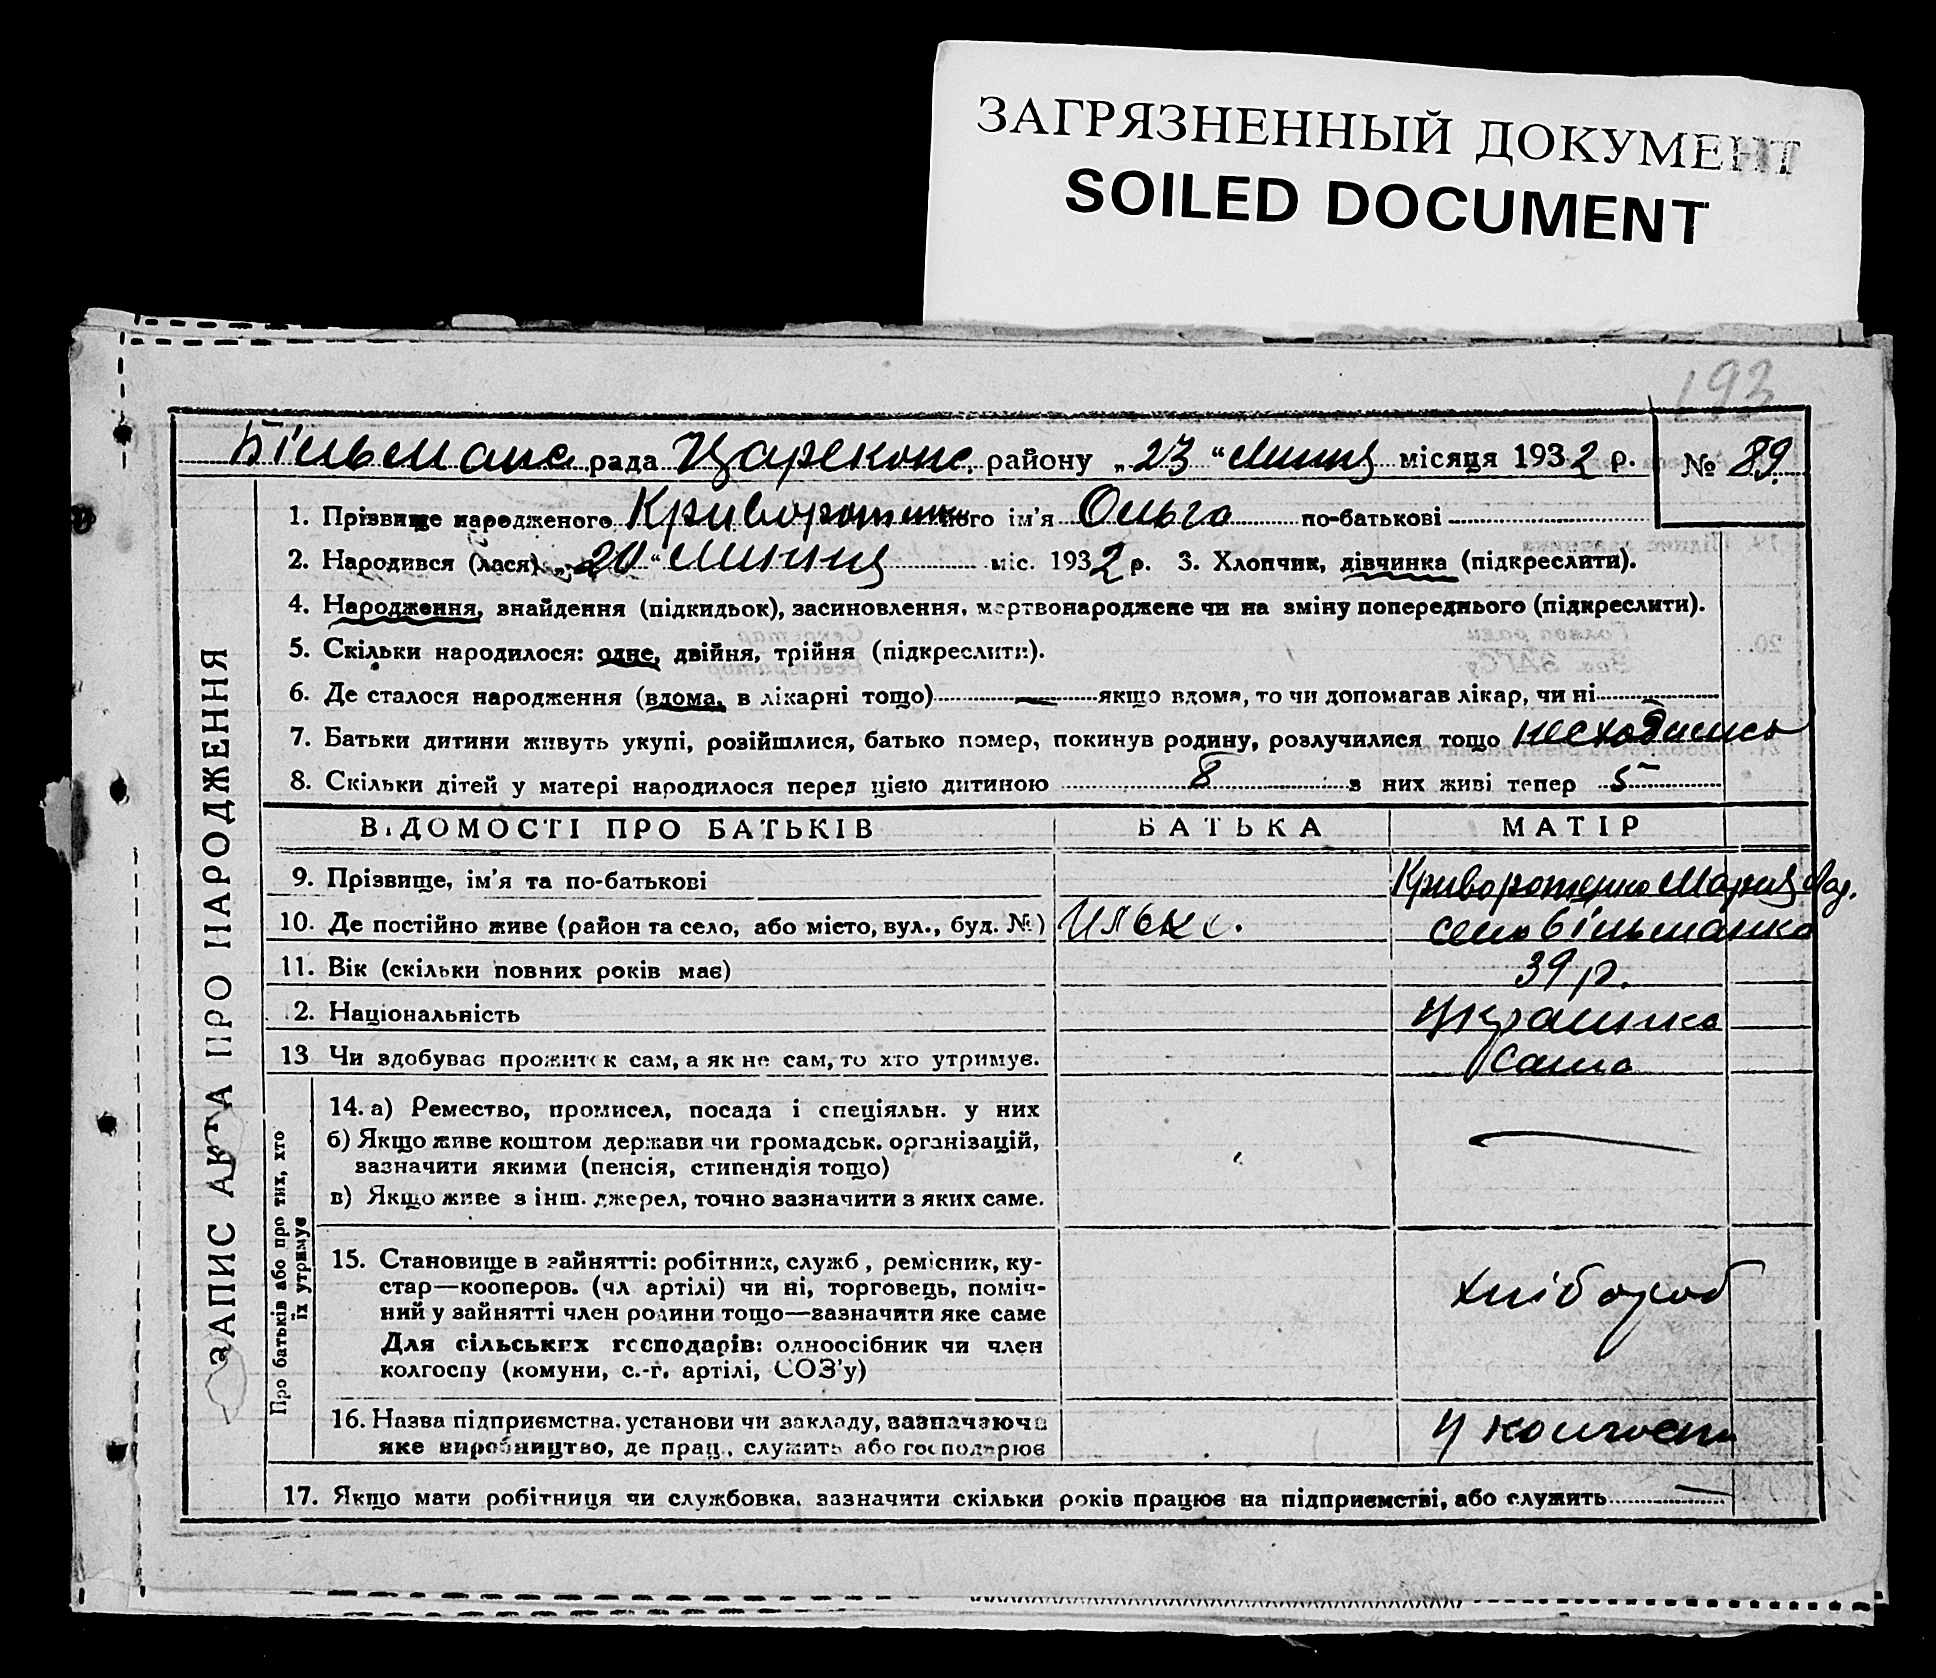 ЗАГРЯЗНЕННЫЙ ДОКУМЕНТ
SOILED DOCUMENT
193
рада район у „23“ місяця 1932 р. № 89
1. Прізвище народженого Криворотенко його ім'я Ольга по-батькові
2. Народився (лася) „20“ міс. 1932 р. 3. Хлопчик, дівчинка (підкреслити).
4. Народження, знайдення (підкидьок), засиновлення, мертвонароджене чи на зміну попереднього (підкреслити).
5. Скільки народилося: одне, двійня, трійня (підкреслити).
6. Де сталося народження (вдома, в лікарні тощо) — якщо вдома, то чи допомагав лікар, чи ні
7. Батьки дитини живуть укупі, розійшлися, батько помер, покинув родину, розлучилися тощо несходились
8. Скільки дітей у матері народилося перед цією дитиною 8 з них живі тепер 5
ЗАПИС АКТА ПРО НАРОДЖЕННЯ
ВІДОМОСТІ ПРО БАТЬКІВ БАТЬКА МАТІР
9. Прізвище, ім'я та по-батькові Криворотенко Мария
10. Де постійно живе (район та село, або місто, вул., буд. №) село більманка
11. Вік (скільки повних років має) 39 р.
2. Національність украинка
13 Чи здобуває прожиток сам, а як не сам, то хто утримує. сама
Про батьків або про тих, хто
їх утримує
14. а) Ремество, промисел, посада і спеціяльн. у них
б) Якщо живе коштом держави чи громадськ. організацій,
зазначити якими (пенсія, стипендія тощо) —
в) Якщо живе з інш. джерел, точно зазначити з яких саме.
15. Становище в зайнятті: робітник, служб, ремісник, ку-
стар—кооперов. (чл артілі) чи ні, торговець, поміч-
ний у зайнятті член родини тощо—зазначити яке саме хлібороб
Для сільських господарів: одноосібник чи член
колгоспу (комуни, с.-г. артілі, СОЗ'у)
16. Назва підприємства, установи чи закладу, зазначаючи
яке виробництво, де прац., служить або господарює у колгоспі
17. Якщо мати робітниця чи службовка, зазначити скільки років працює на підприємстві, або служить —